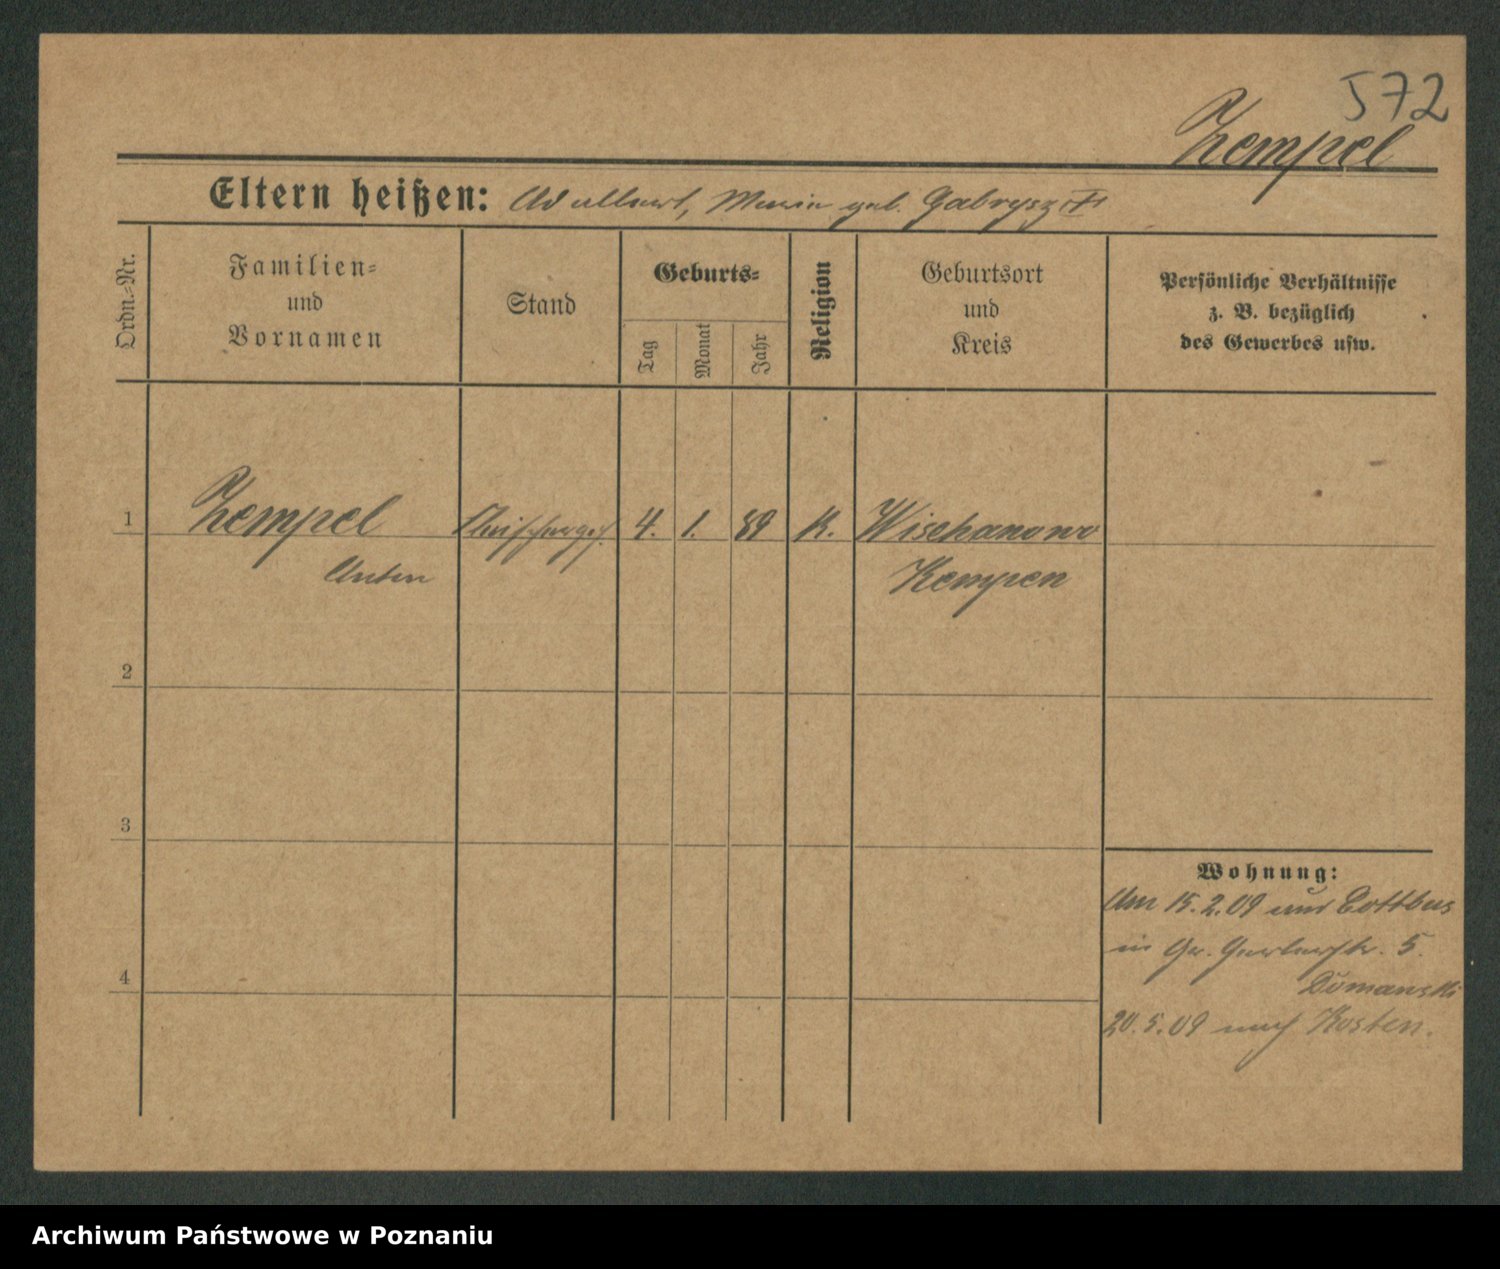 572
Zempel
Eltern heißen: Adalbert, Maria geb. Gabrysz
Ordn.-Nr.
Familien-
und
Vornamen
Stand
Geburts-
Tag
Monat
Jahr
Religion
Geburtsort
und
Kreis
Persönliche Verhältnisse
z. B. bezüglich
des Gewerbes usw.
1 Zempel Fleischerges. 4. 1. 89 K. Wischanowo
Anton Kempen
2
3
4
Wohnung:
Am 15.2.09 aus Cottbus
in Gr. Gerberstr. 5.
Domanski
20.5.09 nach Kosten.
Archiwum Państwowe w Poznaniu